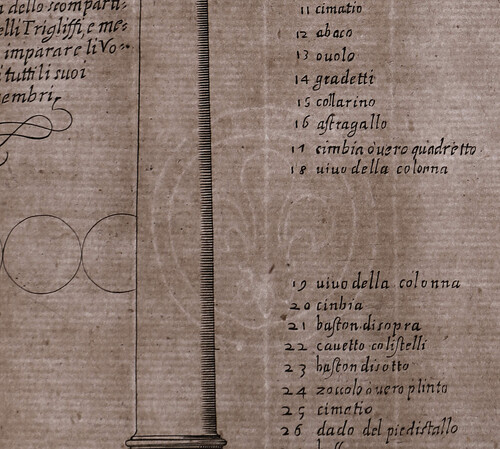 dello scomparti-
elli Trigliffi, e me-
imparare li Vo-
i tutti li suoi
embri,
11 cimatio
12 abaco
13 ouolo
14 gradetti
15 collarino
16 astragallo
17 cimbia ò uero quadretto
18 uiuo della colonna
19 uiuo della colonna
20 cinbia
21 baston disopra
22 cauetto colistelli
23 baston disotto
24 zoccolo ò uero plinto
25 cimatio
26 dado del piedistallo